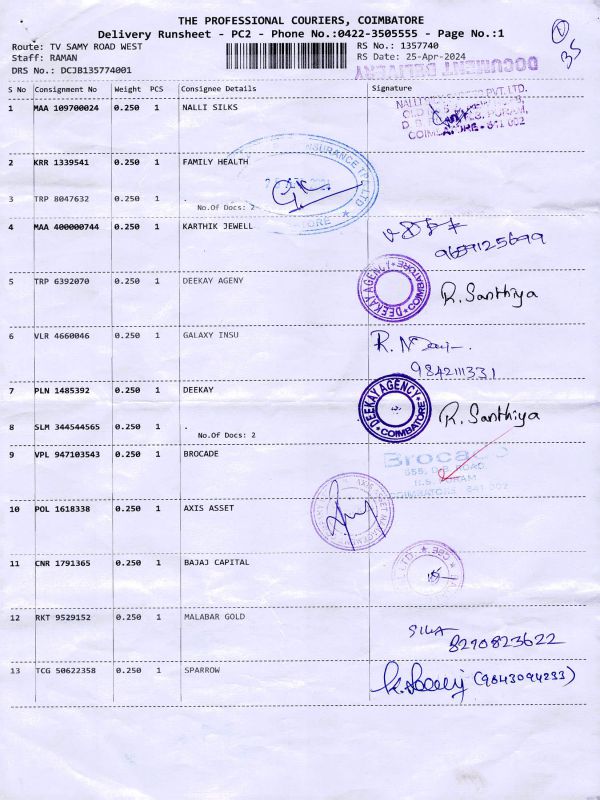 THE PROFESSIONAL COURIERS, COIMBATORE
Delivery Runsheet - PC2 - Phone No.:0422-3505555 - Page No.:1
Route: TV SAMY ROAD WEST
Staff: RAMAN
DRS No.: DCJB135774001
RS No.: 1357740
RS Date: 25-Apr-2024
DOCUMENT DELIVERY
35
S No Consignment No Weight PCS Consignee Details Signature
1 MAA 109700024 0.250 1 NALLI SILKS
NALLI PVT. LTD.
OLD
D. B. PURAM,
COIMBATORE - 641 002
2 KRR 1339541 0.250 1 FAMILY HEALTH
INSURANCE TPA LTD
3 TRP 8047632 0.250 1 .
No.Of Docs: 2
4 MAA 400000744 0.250 1 KARTHIK JEWELL
9659125699
5 TRP 6392070 0.250 1 DEEKAY AGENY
DEEKAY AGENCY
COIMBATORE
R. Santhiya
6 VLR 4660046 0.250 1 GALAXY INSU
9842111331
7 PLN 1485392 0.250 1 DEEKAY
DEEKAY AGENCY
COIMBATORE
R. Santhiya
8 SLM 344544565 0.250 1 .
No.Of Docs: 2
9 VPL 947103543 0.250 1 BROCADE
Brocades
555, D.B. ROAD,
R.S. PURAM
COIMBATORE 641 002
10 POL 1618338 0.250 1 AXIS ASSET
11 CNR 1791365 0.250 1 BAJAJ CAPITAL
CBE
12 RKT 9529152 0.250 1 MALABAR GOLD
8270823622
13 TCG 50622358 0.250 1 SPARROW
(9843094233)